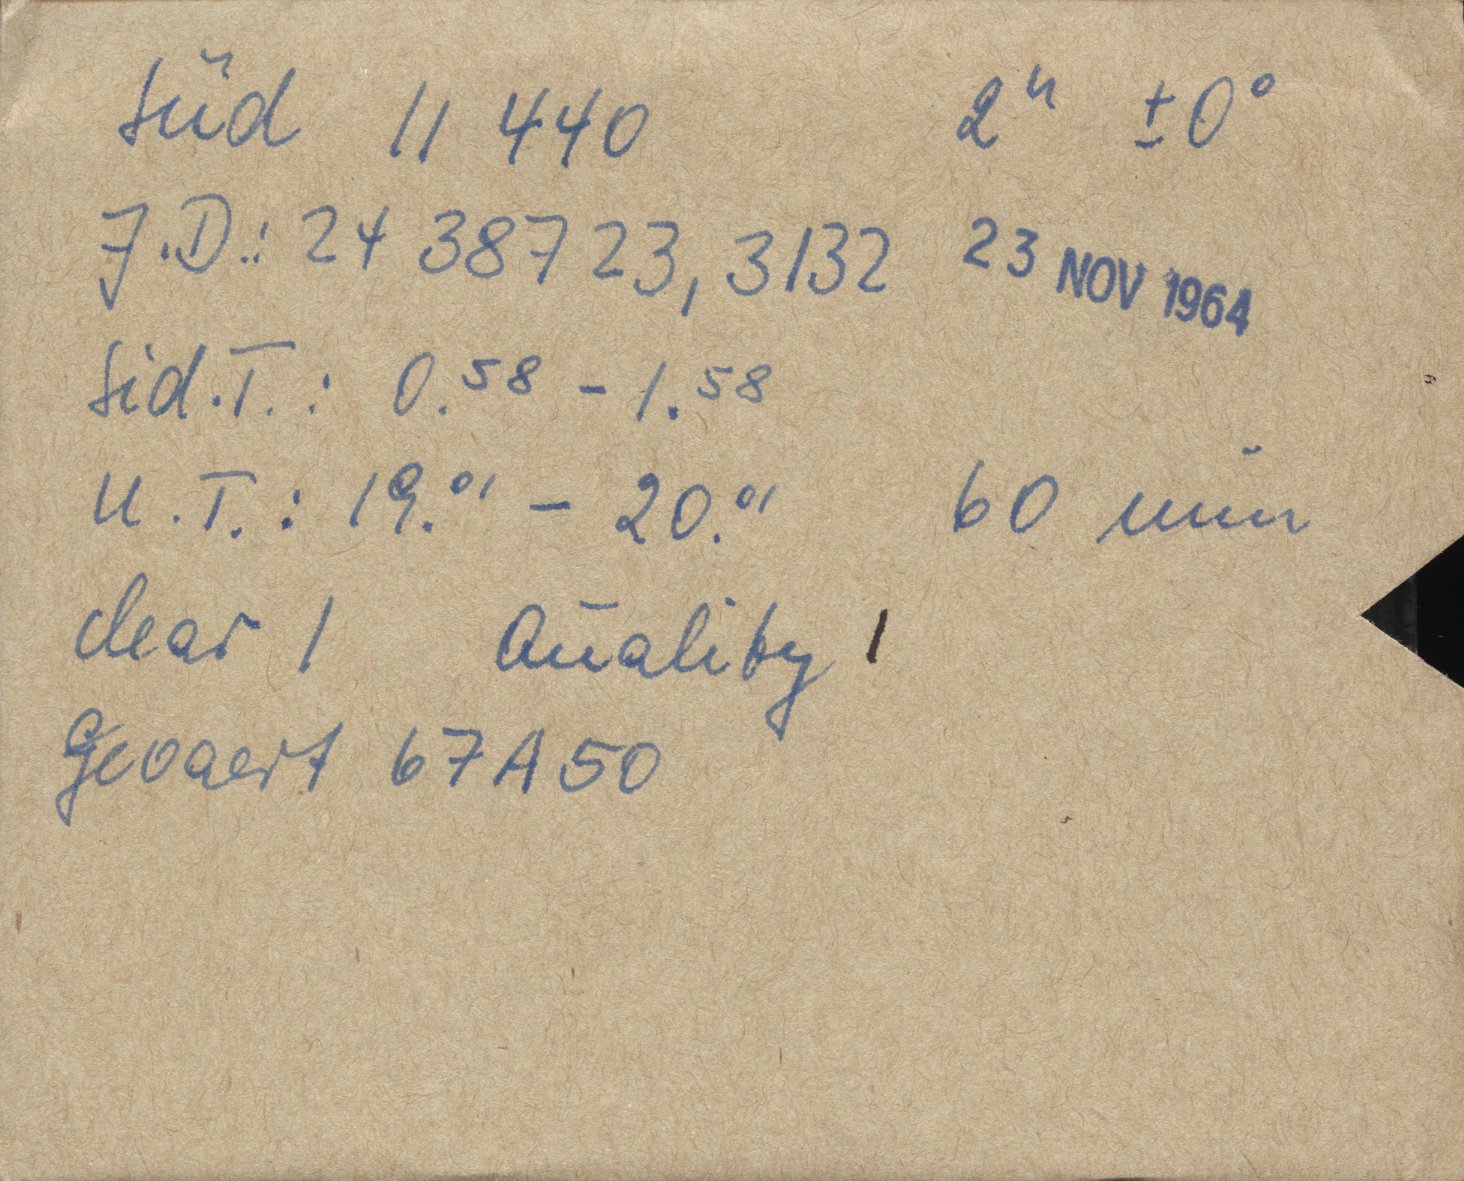 Süd 11 440 2ʰ ±0°
J.D.: 24 38723,3132 23 NOV 1964
Sid.T.: 0.⁵⁸ – 1.⁵⁸
U.T.: 19.⁰¹ – 20.⁰¹ 60 min
clear 1 Quality 1
Gevaert 67A50